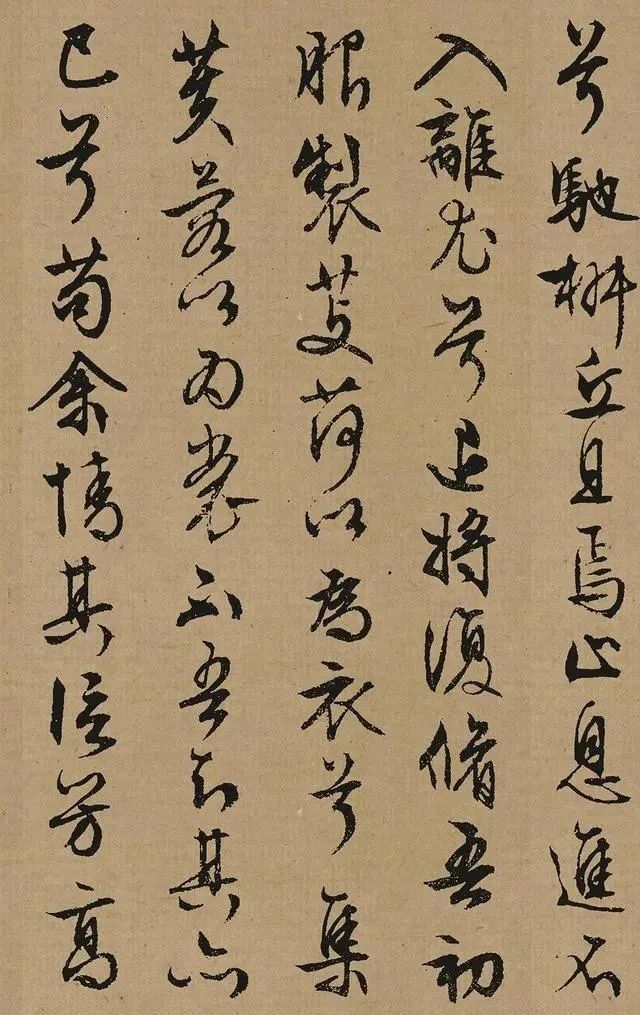 兮馳椒丘且焉止息進不
入離尤兮退將復脩吾初
服製芰荷以為衣兮集
芙蓉以為裳不吾知其亦
已兮苟余情其信芳高